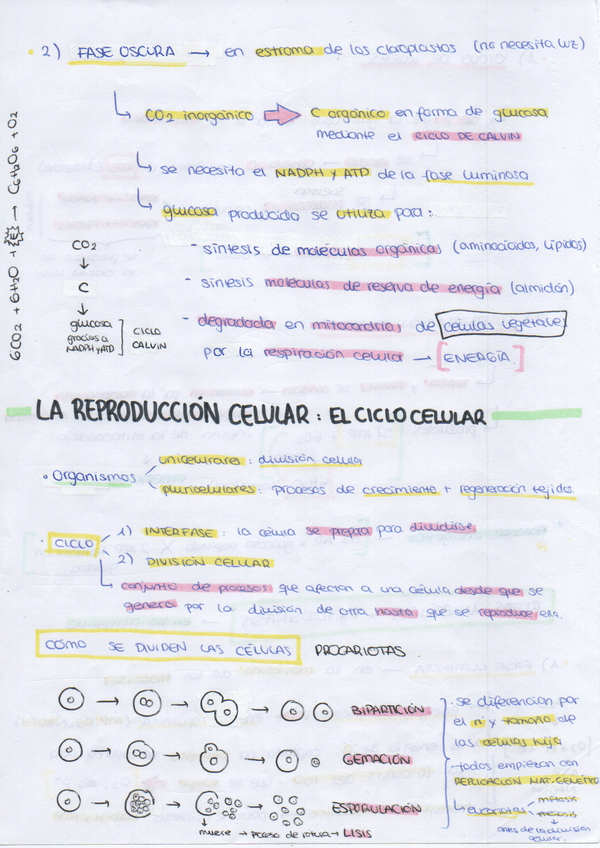 2) FASE OSCURA → en estroma de los cloroplastos (no necesita luz)
CO2 inorgánico ⇨ C orgánico en forma de glucosa
mediante el CICLO DE CALVIN
se necesita el NADPH y ATP de la fase luminosa
glucosa producida se utiliza para:
- síntesis de moléculas orgánicas (aminoácidos, lípidos)
- síntesis moléculas de reserva de energía (almidón)
- degradada en mitocondrias de células vegetales
por la respiración celular → [ENERGÍA.]
6CO2 + 6H2O + {E} → C6H12O6 + O2
CO2
↓
C
↓
glucosa
gracias a
NADPH y ATP
CICLO
CALVIN
LA REPRODUCCIÓN CELULAR: EL CICLO CELULAR
Organismos
unicelulares: división celular
pluricelulares: procesos de crecimiento + regeneración tejidos
CICLO
1) INTERFASE: la célula se prepara para dividirse
2) DIVISIÓN CELULAR
conjunto de procesos que afectan a una célula desde que se
generó por la división de otra hasta que se reproduce ella.
CÓMO SE DIVIDEN LAS CÉLULAS PROCARIOTAS.
BIPARTICIÓN
GEMACIÓN
ESPORULACIÓN
muerte → proceso de rotura → LISIS
· se diferencian por
el nº y tamaño de
las células hija
· todas empiezan con
REPLICACIÓN MAT. GENÉTICO
eucariotas
mitosis
meiosis
antes de la división
celular.